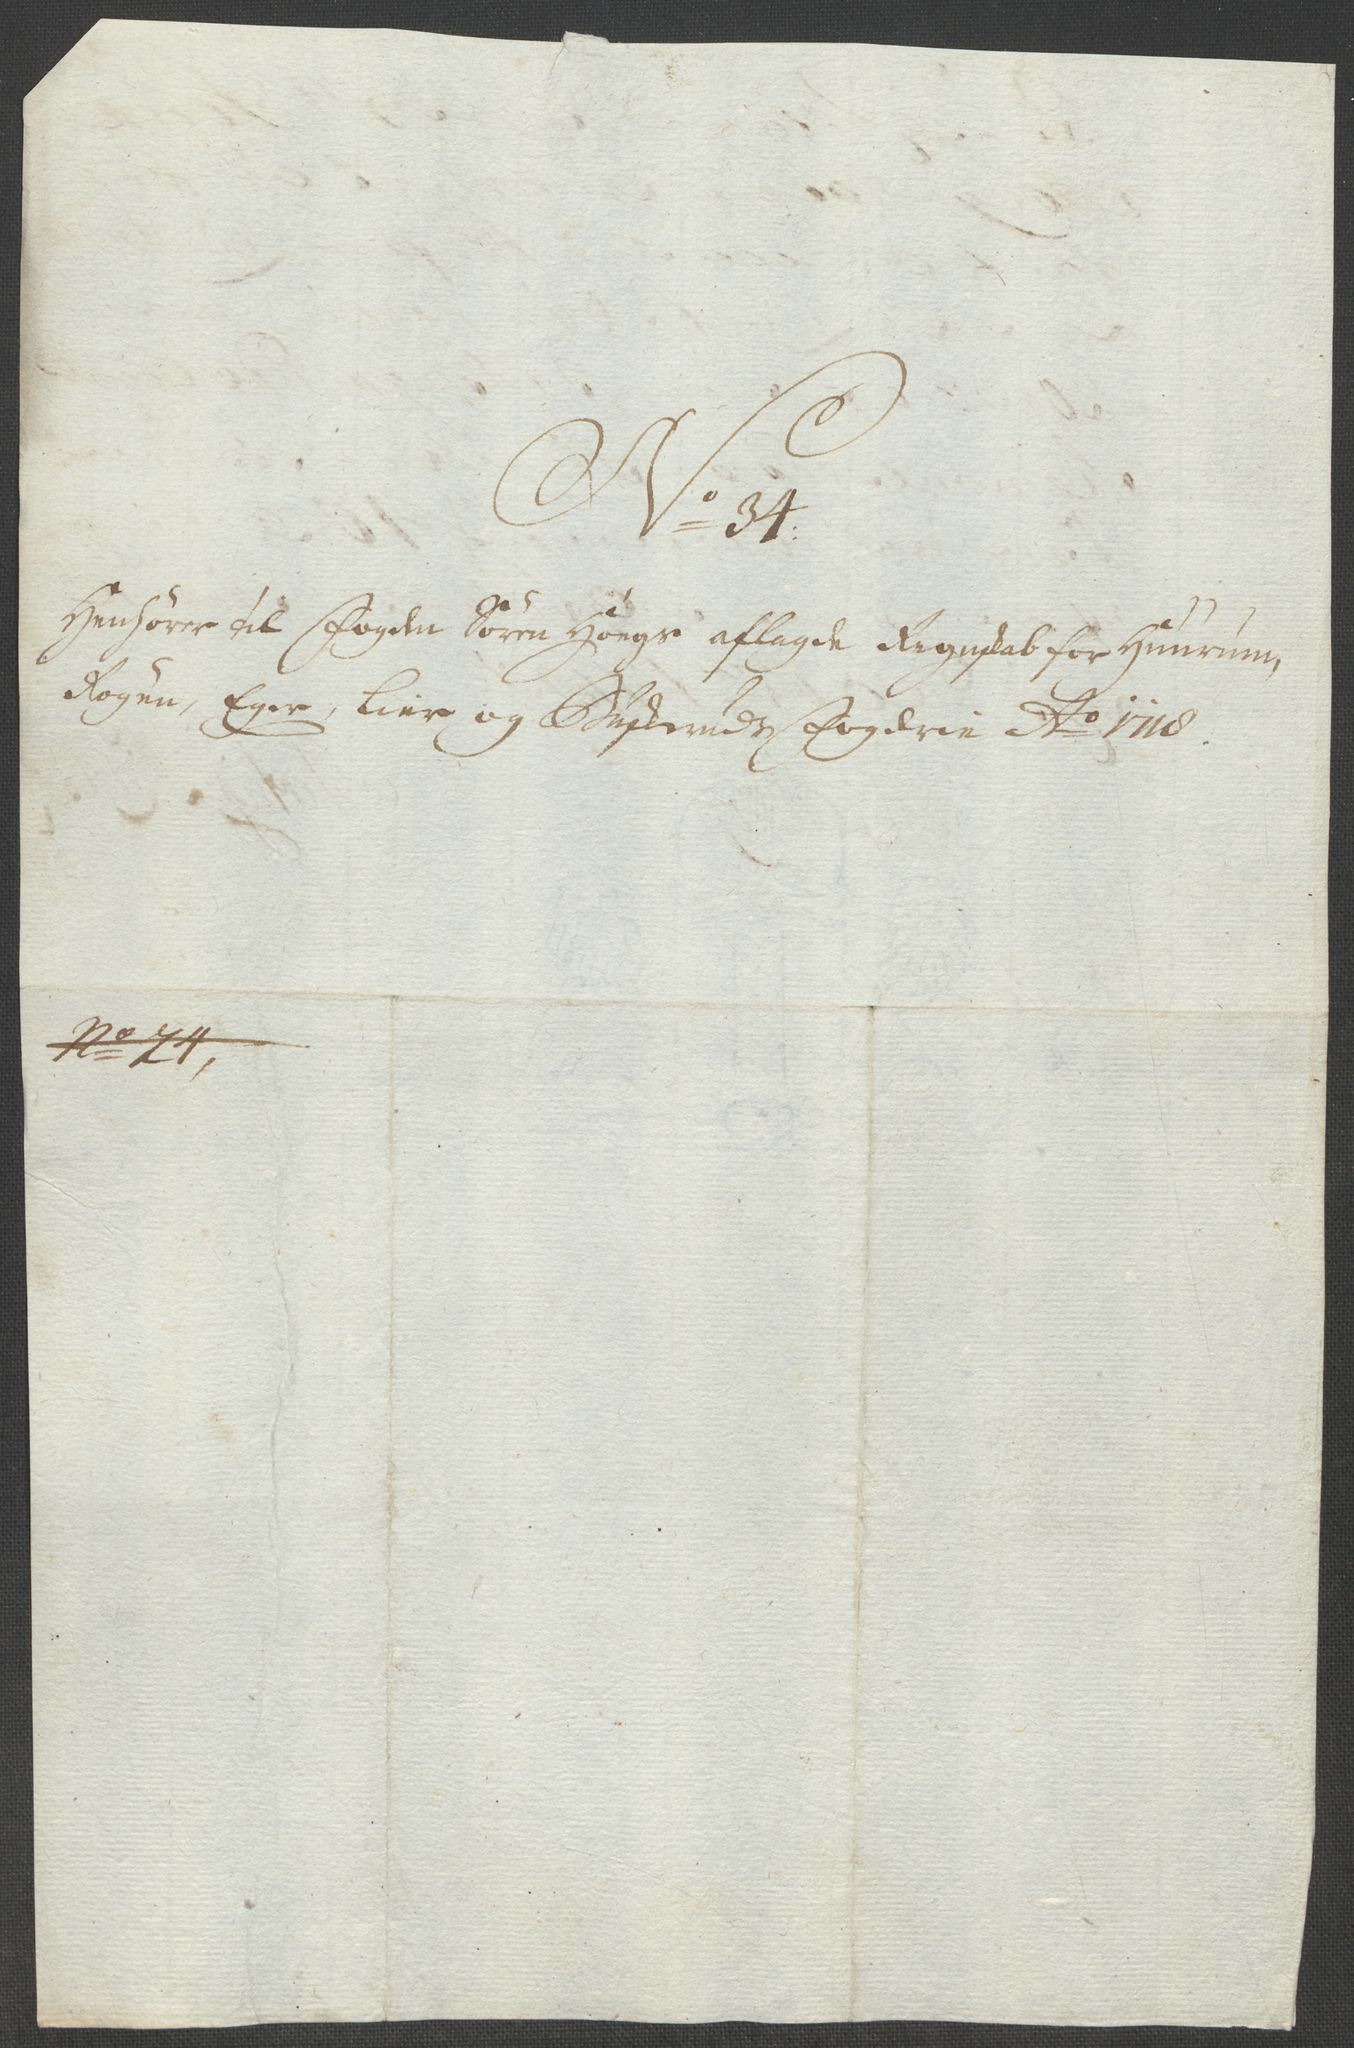 No 34.
Henhörer til Fogden Sören Höegs aflagde Regnskab for Huurum,
Rögen, Eger, Lier og Buskeruds Fogderie Ao 1718.
No 24,